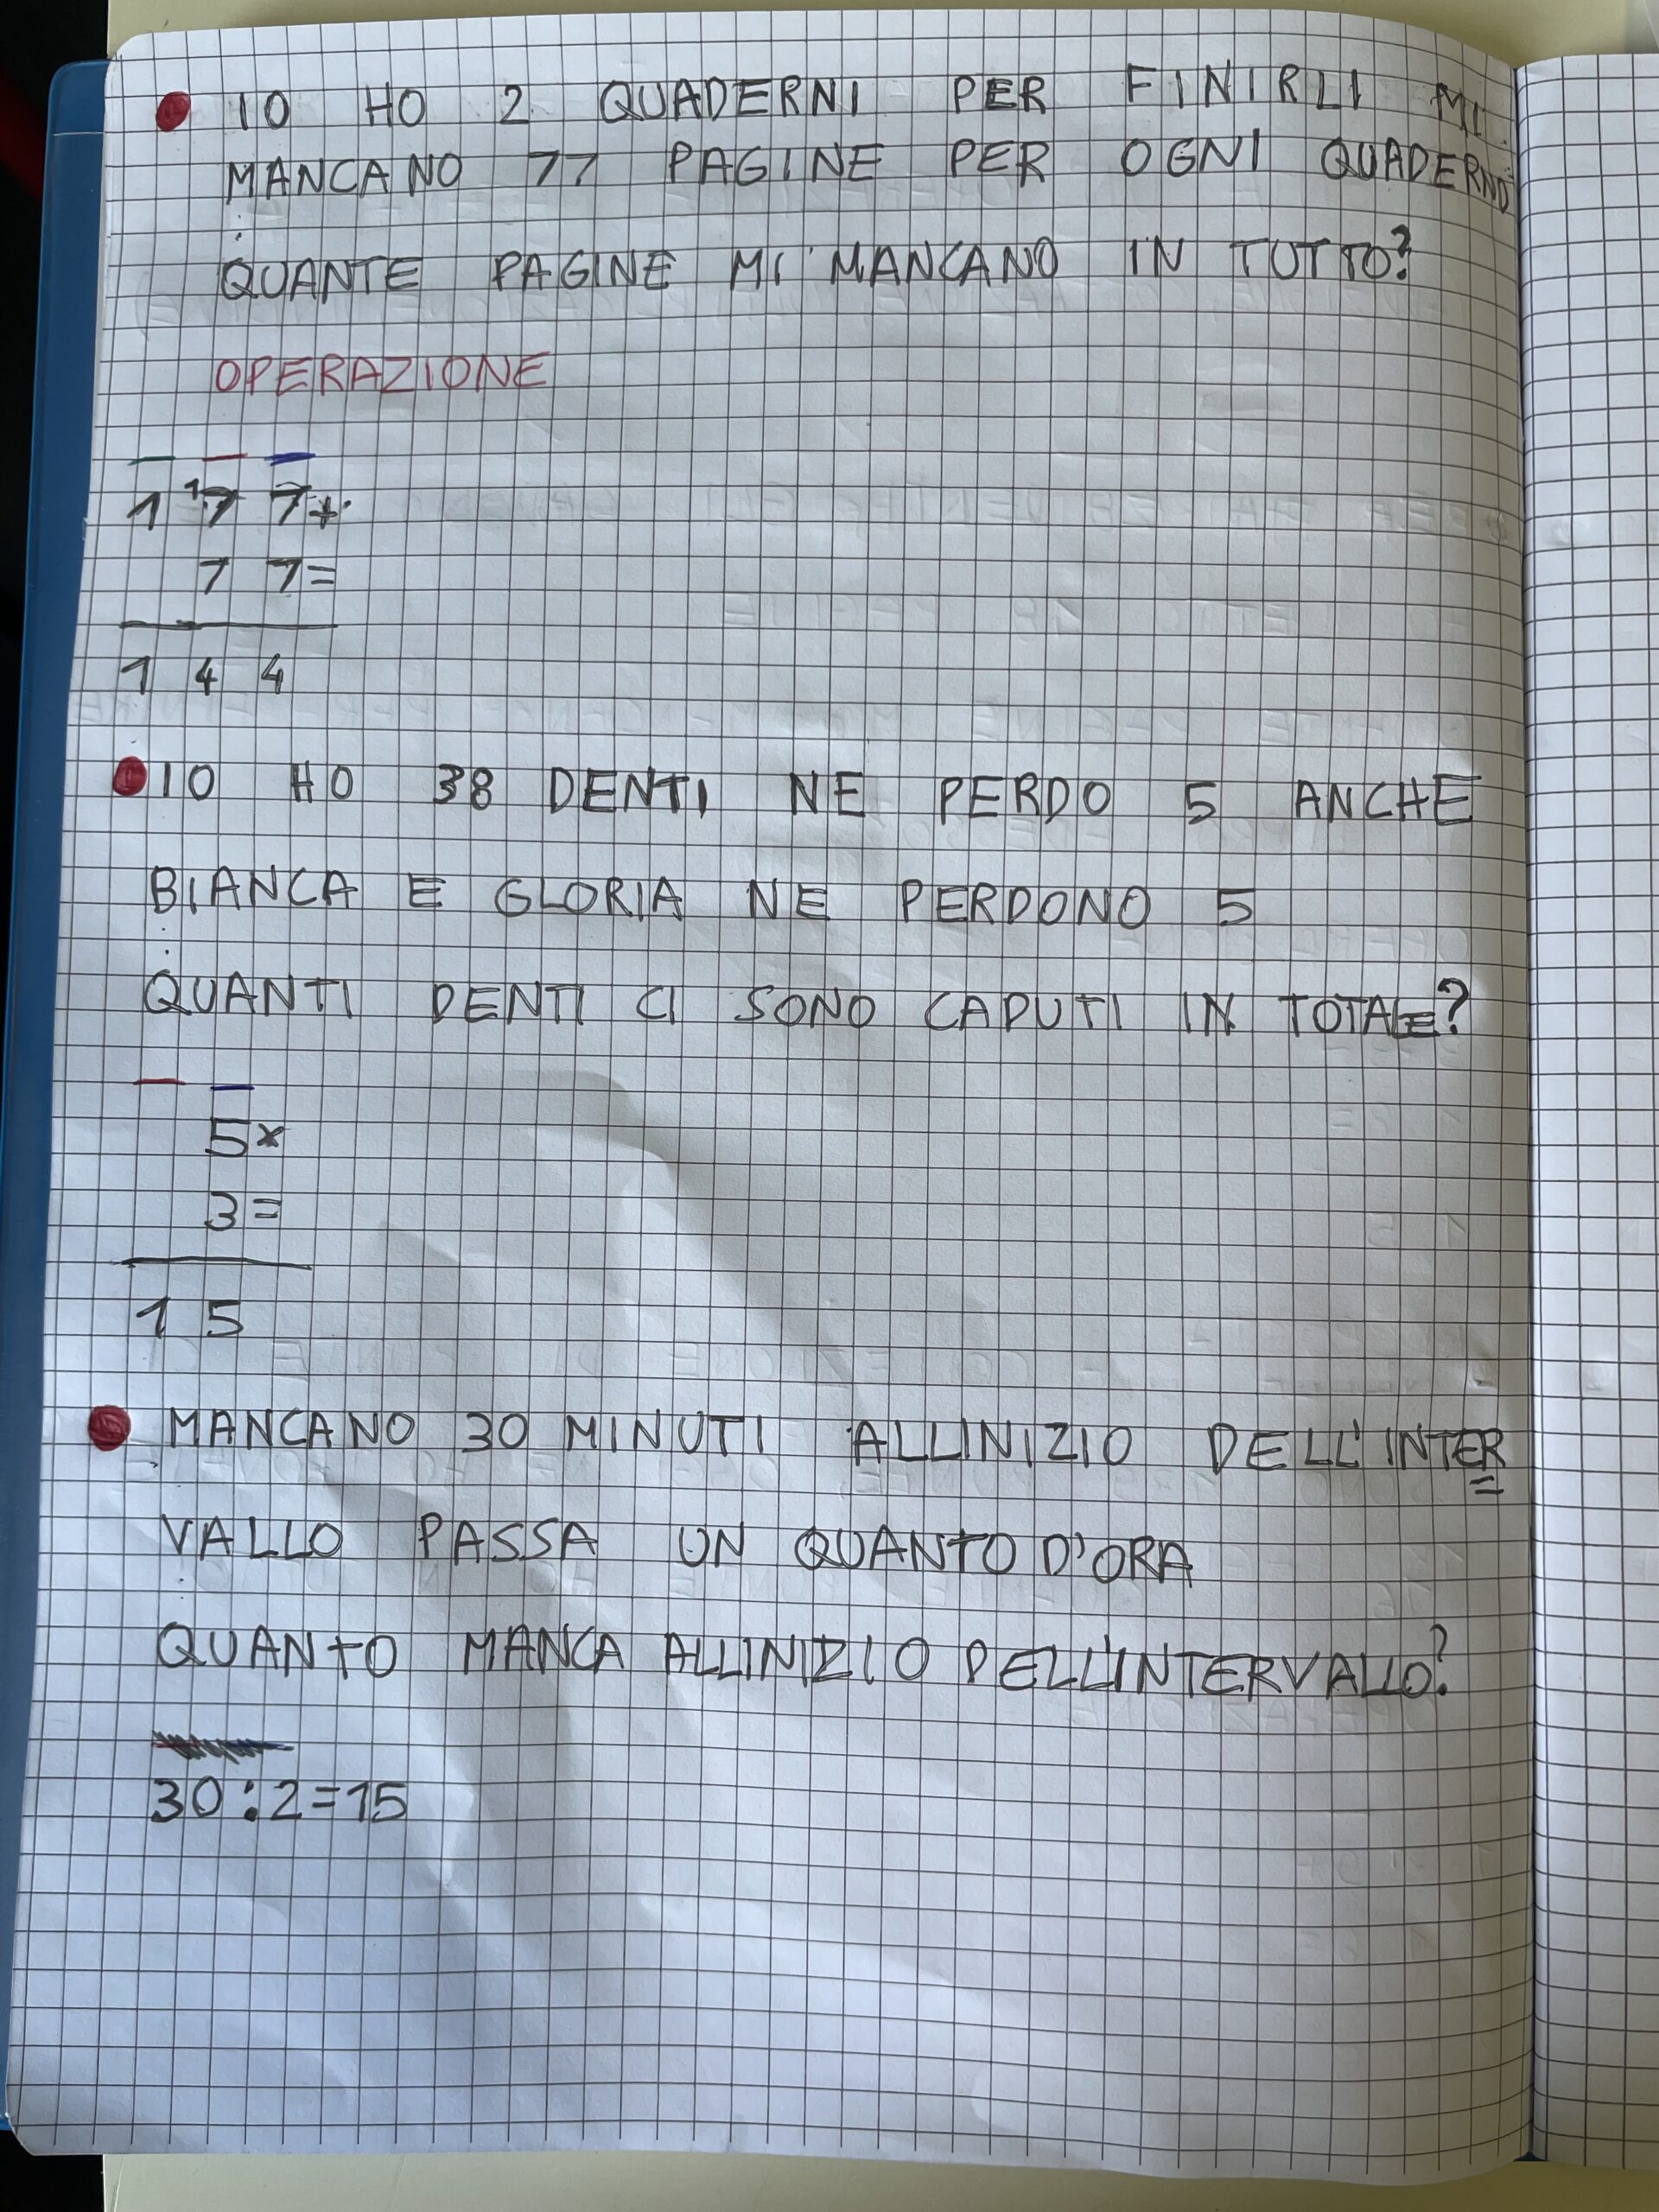 IO HO 2 QUADERNI PER FINIRLI MI
MANCANO 77 PAGINE PER OGNI QUADERNO
QUANTE PAGINE MI MANCANO IN TUTTO?
OPERAZIONE
1 ¹7 7+
7 7=
1 4 4
IO HO 38 DENTI NE PERDO 5 ANCHE
BIANCA E GLORIA NE PERDONO 5
QUANTI DENTI CI SONO CADUTI IN TOTALE?
5×
3=
1 5
MANCANO 30 MINUTI ALLINIZIO DELL'INTER=
VALLO PASSA UN QUANTO D'ORA
QUANTO MANCA ALLINIZIO DELL'INTERVALLO?
30:2=15